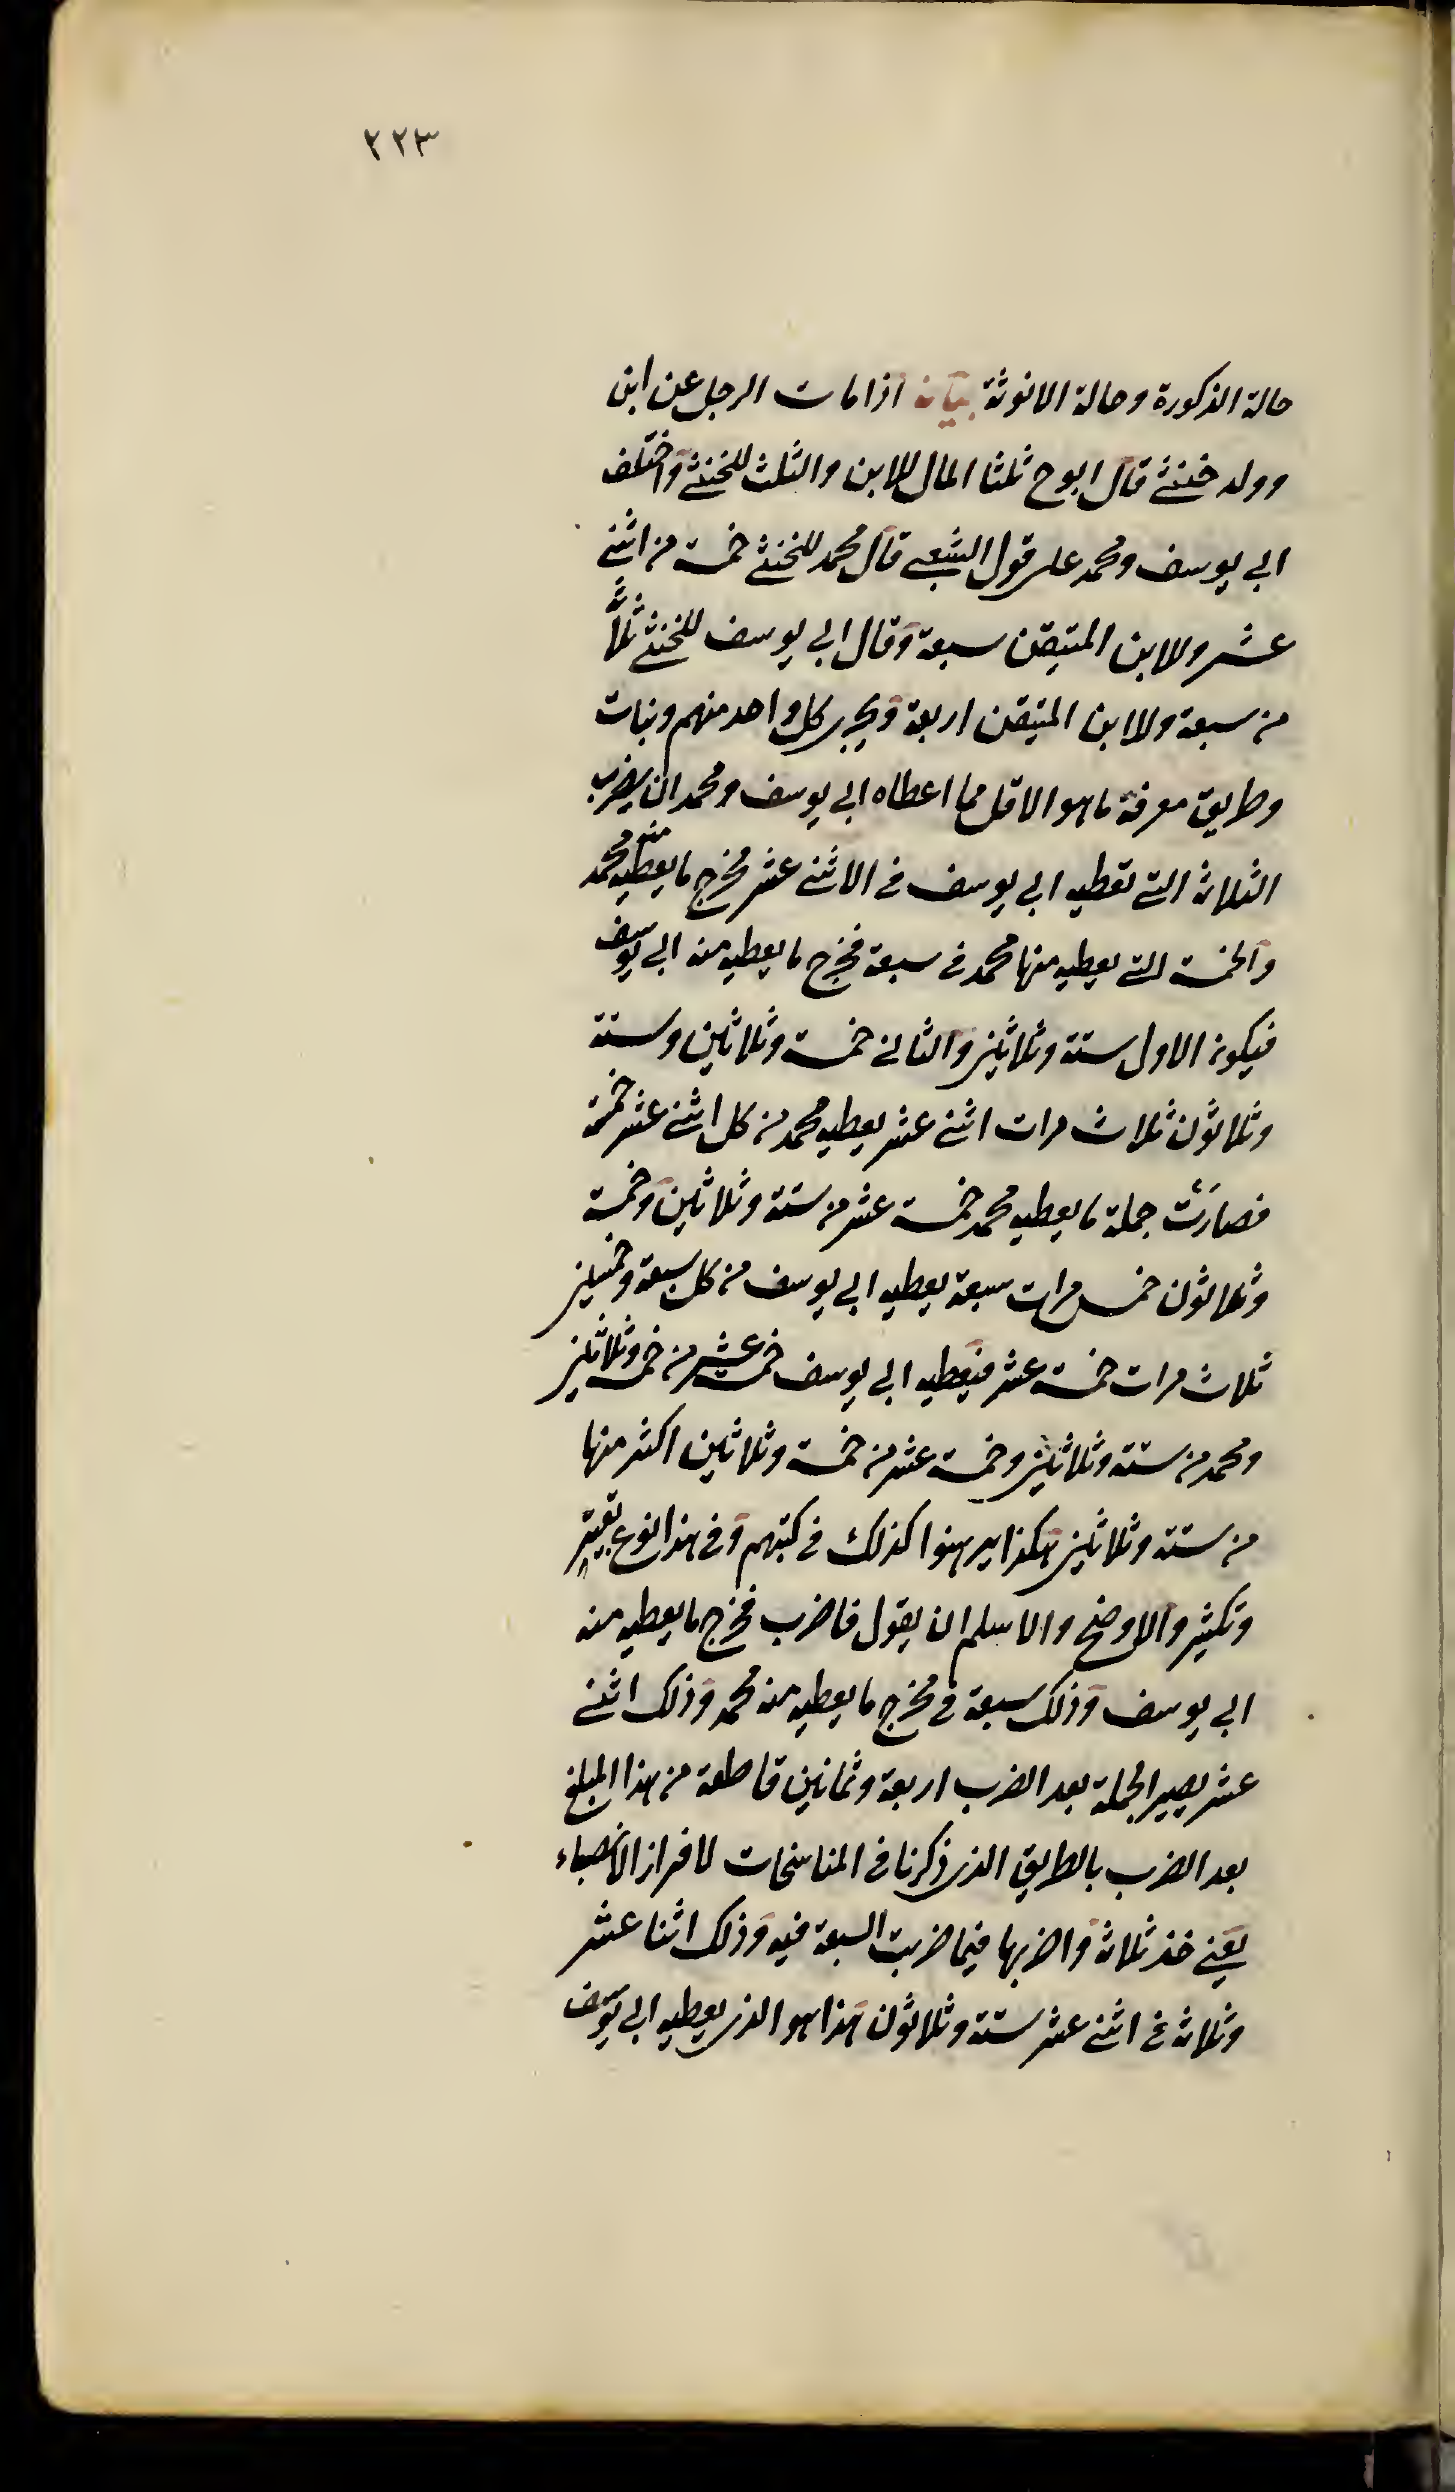 ٢٢٣
حالة الذكورة وحالة الانوثة بيانه اذا مات الرجل عن ابن
وولد خنثى قال ابوح ثلثا المال للابن والثلث للخنثى واختلف
ابى يوسف ومحمد على قول الشعبى قال محمد للخنثى خمسة من اثنى
عشر وللابن المتيقن سبعة وقال ابى يوسف للخنثى ثلاثة
من سبعة وللابن المتيقن اربعة ويجرى كل واحد منهم وبنات
وطريق معرفة ما هو الاقل مما اعطاه ابى يوسف ومحمد ان يضرب
الثلاثة التى تعطيه ابى يوسف فى الاثنى عشر مخرج ما يعطيه منه محمد
والخمسة التى يعطيه منها محمد فى سبعة مخرج ما يعطيه منه ابى يوسف
فيكون الاول ستة وثلاثين والثانى خمسة وثلاثين وستة
وثلاثون ثلاث مرات اثنى عشر يعطيه محمد من كل اثنى عشر خمسة
فصارت جملة ما يعطيه محمد خمسة عشر من ستة وثلاثين وخمسة
وثلاثون خمس مرات سبعة يعطيه ابى يوسف من كل سبعة وخمسين
ثلاث مرات خمسة عشر فيعطيه ابى يوسف خمسة عشر من خمسة وثلاثين
ومحمد من ستة وثلاثين وخمسة عشر من خمسة وثلاثين اكثر منها
من ستة وثلاثين هكذا يبرهنوا كذلك فى كتبهم وفى هذا نوع
وتكثير والاوضح والاسلم ان يقول فاضرب مخرج ما يعطيه منه
ابى يوسف وذلك سبعة فى مخرج ما يعطيه منه محمد وذلك اثنى
عشر يصير الجملة بعد الضرب اربعة وثمانين فاطلعه من هذا المبلغ
بعد الضرب بالطريق الذى ذكرنا فى المناسخات لافراز الانصباء
يعنى خذ ثلاثة واضربها فيما ضربت السبعة فيه وذلك اثنا عشر
وثلاثة فى اثنى عشر ستة وثلاثون هذا هو الذى يعطيه ابى يوسف